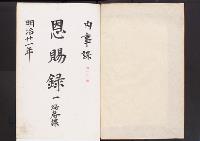 内事課
恩賜録 一
明治廿一年